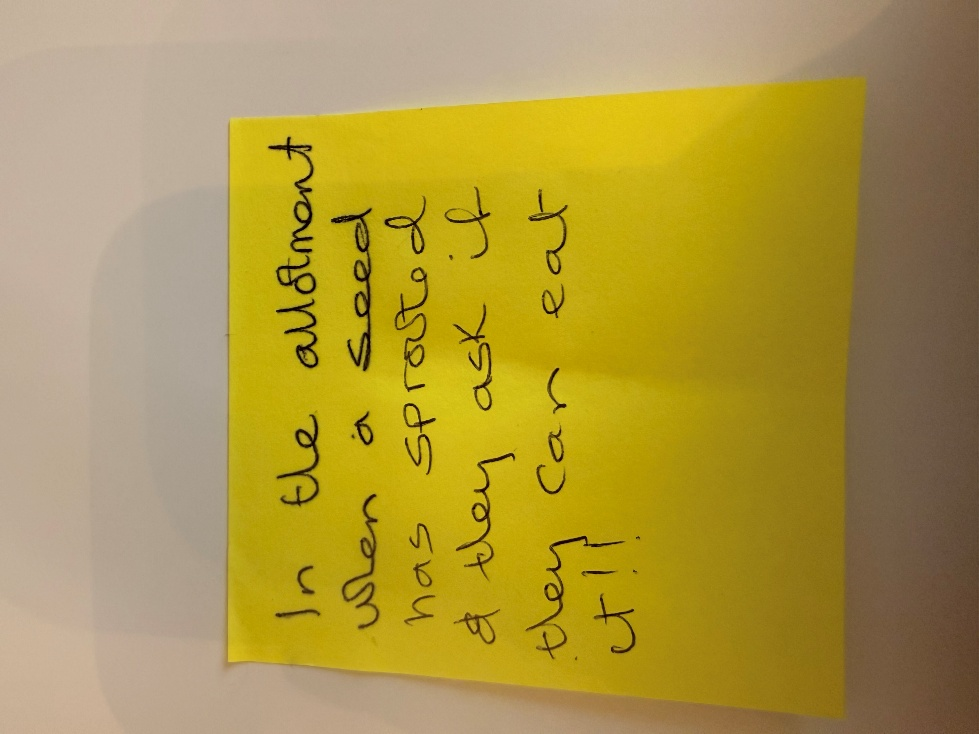 In the allotment
when a seed
has sprouted
& they ask if
they can eat
it!!